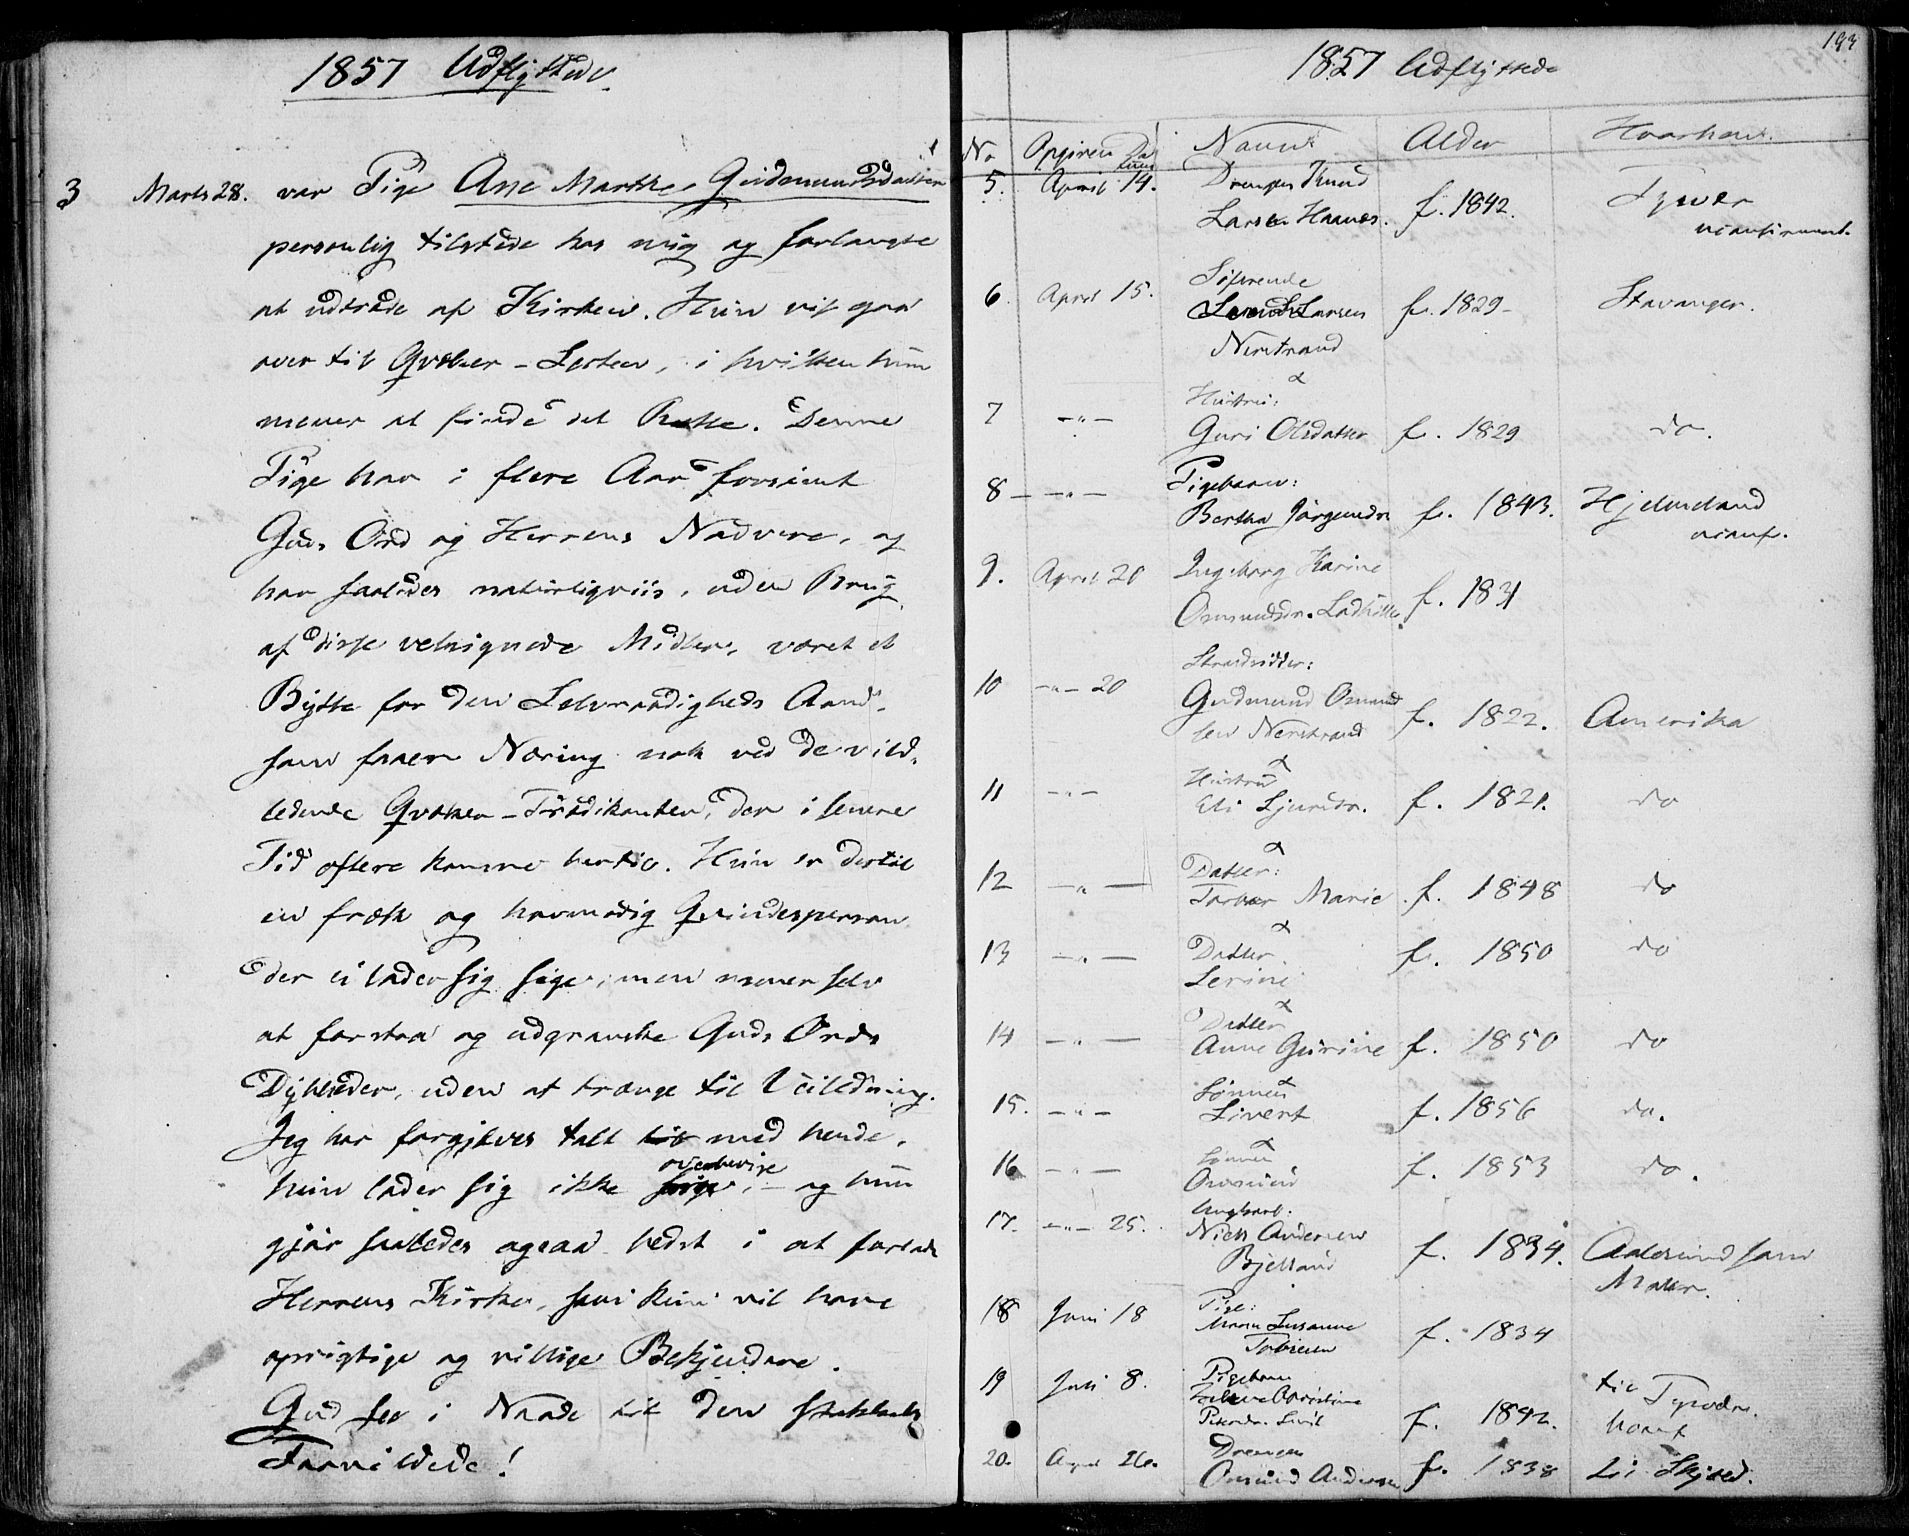 1857 Udflyttede
3 Marts 28. var Pige Ane Marthe Gudmundsdatter
personlig tilstede hos mig og forlangte
at udtræde af Kirken. Hun vil gaa
over til Qvæker-Secten, i hvilken hun
mener at finde det Rette. Denne
Pige har i flere Aar forsømt
Guds Ord og Herrens Nadvere, og
har saaledes naturligviis, uden Brug
af disse velsignede Midler, været et
Bytte for den Selvraadigheds Aand,
som faaer Næring nok ved de vild-
ledende Qvæker-Prædikanter, der i senere
Tid oftere komme hertil. Hun er dertil
en fræk og hovmodig Qvindesperson
der ei lader sig sige, men mener selv
at forstaa og udgranske Guds Ords
Dybheder, uden at trænge til Veiledning.
Jeg har forgjæves talt til med hende,
overbevise
hun lader sig ikke sige, – og hun
gjør saaledes ogsaa bedst i at forlade
Herrens Kirke, som kun vil have
oprigtige og villige Bekjendere.
Gud see i Naade til den stakkels
Forvildede!
193
1857 Udflyttede
No Opgiven Datum Navne Alder Hvorhen.
5. April 14. Drengen Knud
Larsen Haanes. f. 1842. Tysvær
uconfirmeret.
6. April 15. Løsrende
Larsen f. 1829 Stavanger.
Nerstrand
7 –"– Hustru:
Guri Olsdatter f. 1829 do.
8 –"– Pigebarn:
Bertha Jørgensdr f. 1843. Hjelmeland
uconf.
9. April 20 Ingeborg Karine
Osmundsdr. f. 1831
10 –"– 20 Strandsidder:
Gudmund Osmund
sen Nerstrand f. 1822. Amerika
11 –"– Hustru
Eli Sjursdr. f. 1821. do
12 –"– Datter:
Marie f. 1848 do
13 –"– Datter
Serine f. 1850 do
14 –"– Datter
Anne Gurine f. 1850 do
15. –"– Sønnen
Sivert f. 1856 do.
16 –"– Sønnen
Osmund f. 1853 do.
17. –"– 25. Ungkarl:
Niels Andersen
Bjelland f. 1834. Aalesund som
Maler.
18 Juni 18 Pige:
Maren Susanne
f. 1834
19 Juli 8. Pigebarn
Christine til Tysvær.
Pedersdr. f. 1842. uconf
20. August 26. Drengen
Osmund Andersen f. 1838 til Skjold.